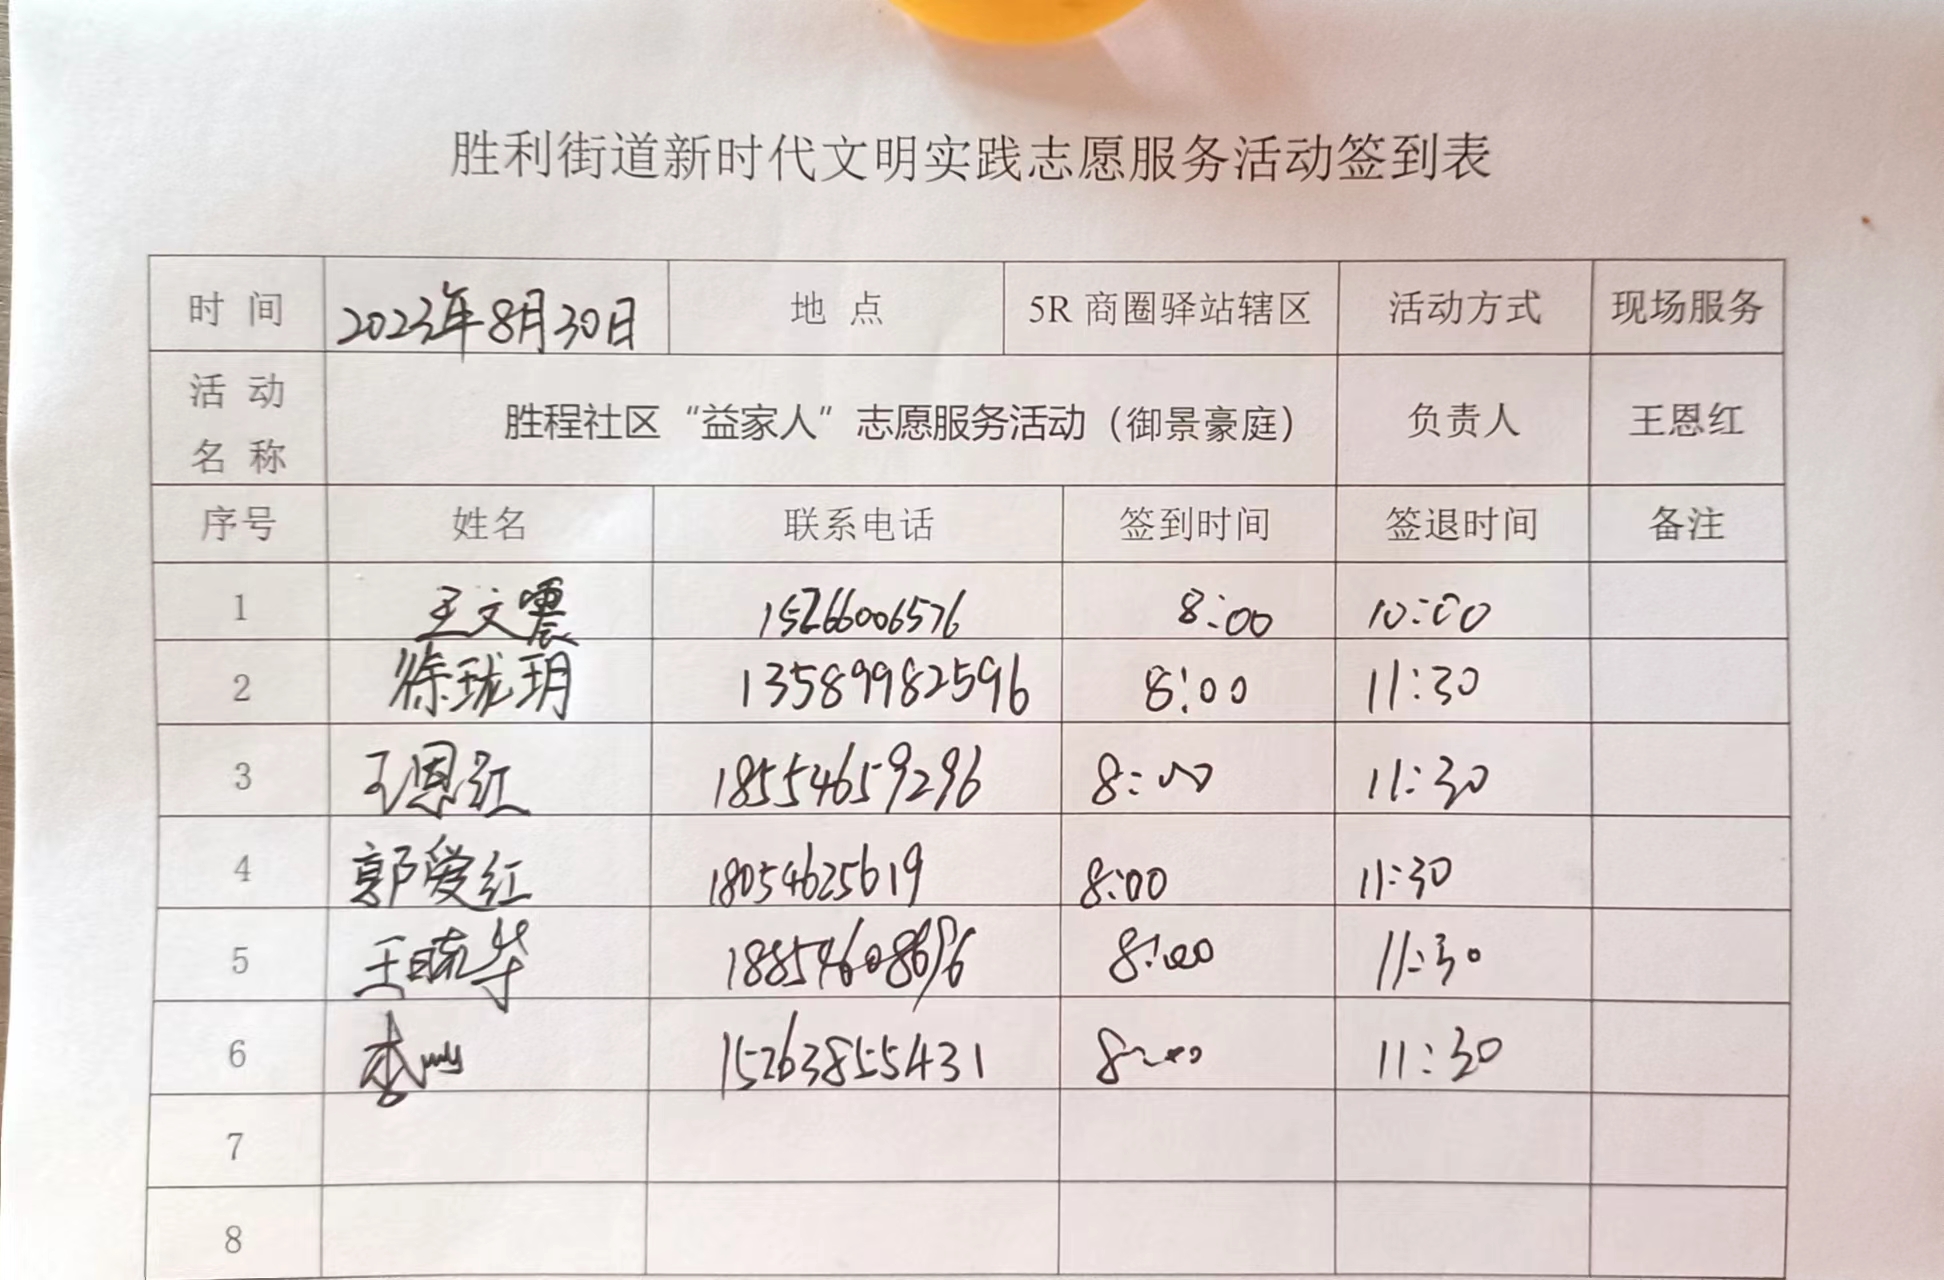 胜利街道新时代文明实践志愿服务活动签到表
时 间 2023年8月30日 地 点 5R 商圈驿站辖区 活动方式 现场服务
活 动
名 称 胜程社区“益家人”志愿服务活动（御景豪庭） 负责人 王恩红
序号 姓名 联系电话 签到时间 签退时间 备注
1 王文震 15266006576 8:00 10:00
2 徐珑玥 13589982596 8:00 11:30
3 王恩红 18554659296 8:00 11:30
4 郭爱红 18054625619 8:00 11:30
5 王晓华 18854608696 8:00 11:30
6 李 15263855431 8:00 11:30
7
8